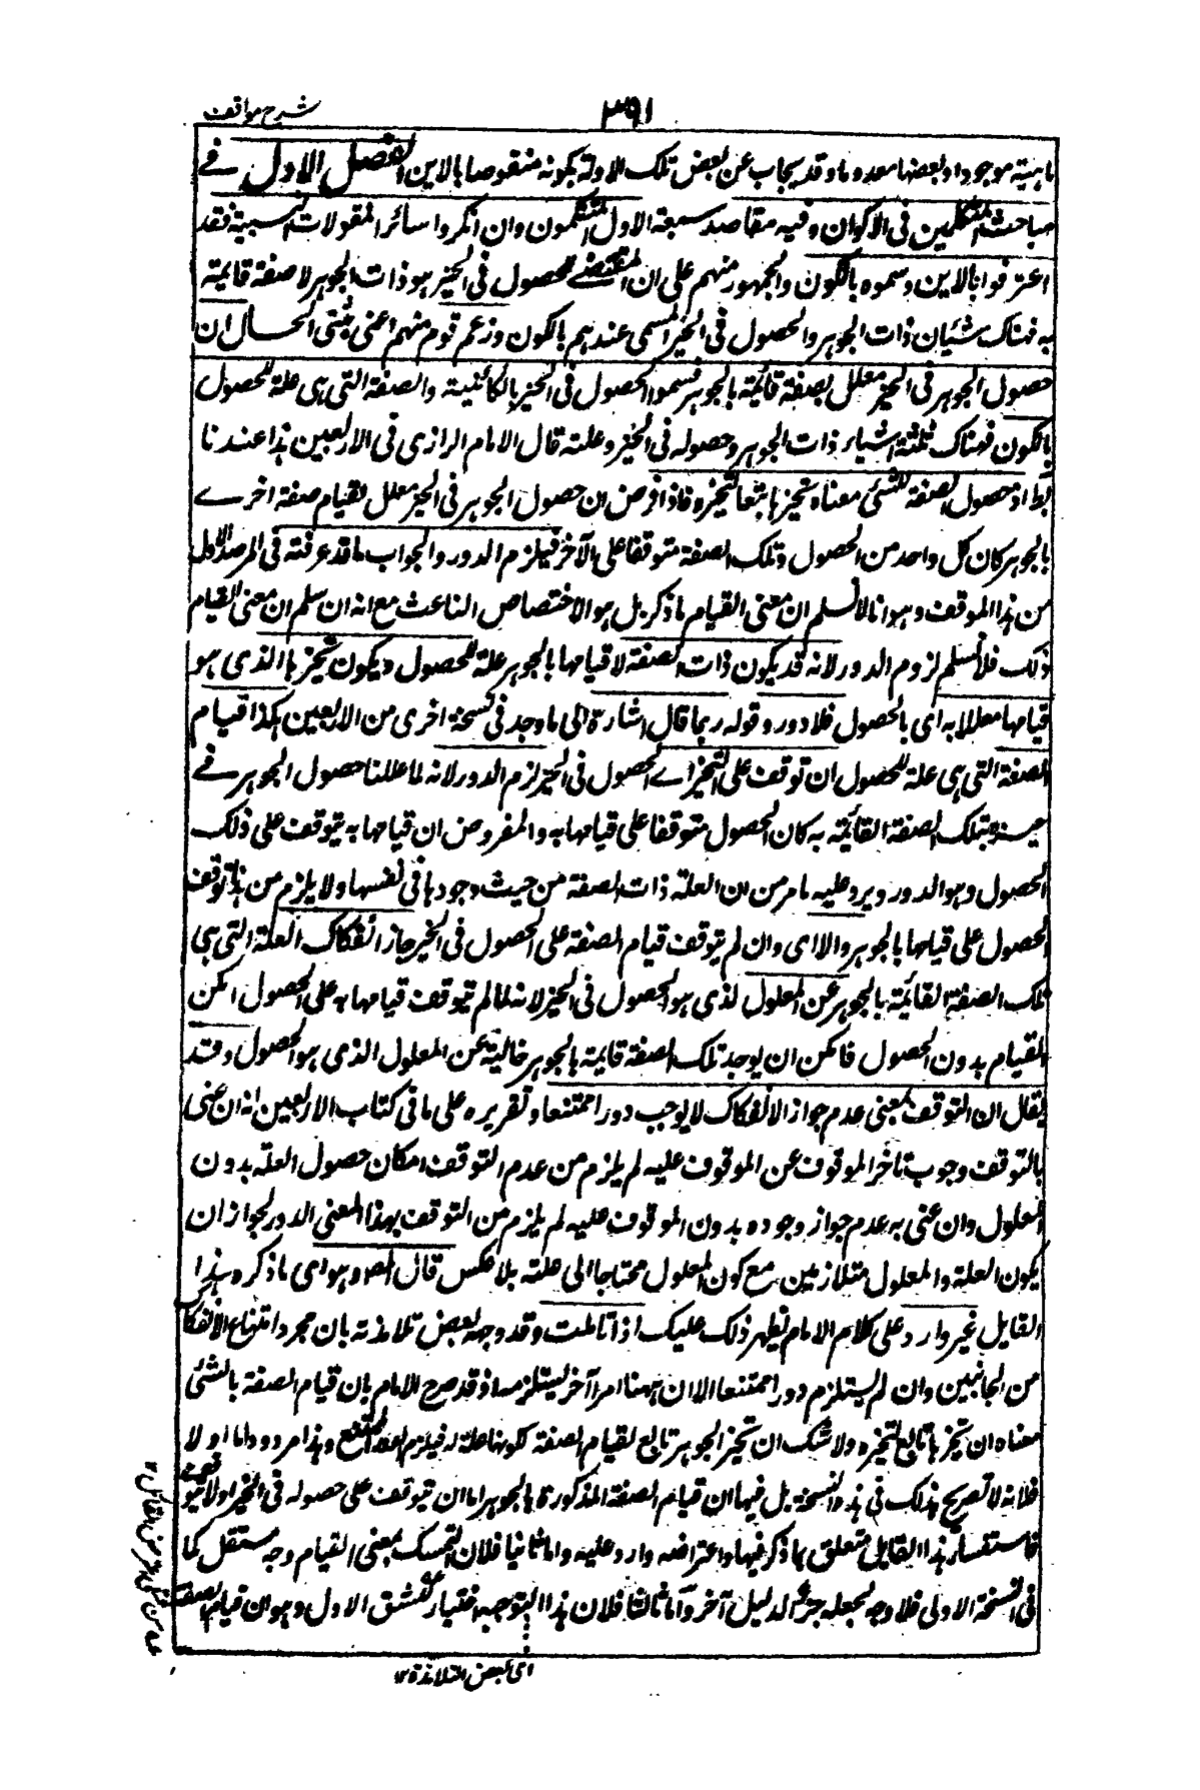 شرح مواقف
٣٩١
ماهية موجودا وبعضها معدوما وقد يجاب عن بعض تلك الادلة بكونه منقوضا بالاين الفصل الاول في
مباحث المتكلمين فى الاكوان وفيه مقاصد سبعة الاول المتكلمون وان انكروا سائر المقولات النسبية فقد
اعترفوا بالاين وسموه بالكون والجمهور منهم على ان المقتضى للحصول فى الحيز هو ذات الجوهر لا صفة قائمة
به فهناك شيئان ذات الجوهر والحصول فى الحيز المسمى عندهم بالكون وزعم قوم منهم اعنى مثبتى الحال ان
حصول الجوهر فى الحيز معلل بصفة قائمة بالجوهر فسموا الحصول فى الحيز بالكائنية والصفة التى هى علة للحصول
بالكون فهناك ثلثة اشياء ذات الجوهر وحصوله فى الحيز وعلته قال الامام الرازى فى الاربعين هذا عندنا
بط اذ حصول الصفة للشئ معناه تحيزها تبعا لتحيزه فاذا فرض ان حصول الجوهر فى الحيز معلل بقيام صفة اخرے
بالجوهر كان كل واحد من الحصول وتلك الصفة متوقفا على الآخر فيلزم الدور والجواب ما قد عرفته فى المرصد الاول
من هذا الموقف وهو انا لا نسلم ان معنى القيام ما ذكر بل هو الاختصاص الناعت مع انه ان سلم ان معنى القيام
ذلك فلا نسلم لزوم الدور لانه قد يكون ذات الصفة لا قيامها بالجوهر علة للحصول ويكون تحيزها الذى هو
قيامها معللا به اى بالحصول فلا دور وقوله ربما قال اشارة الى ما وجد فى نسخة اخرى من الاربعين هكذا قيام
الصفة التى هى علة للحصول ان توقف على التحيز اے الحصول فى الحيز لزم الدور لانه لما عللنا حصول الجوهر فے
حيزه بتلك الصفة القائمة به كان الحصول متوقفا على قيامها به والمفروض ان قيامها به يتوقف على ذلك
الحصول وهو الدور ويرد عليه ما مر من ان العلة ذات الصفة من حيث وجودها فى نفسها ولا يلزم من هذا توقف
الحصول على قيامها بالجوهر والا اى وان لم يتوقف قيام الصفة على الحصول فى الحيز جاز انفكاك العلة التى هى
تلك الصفة القائمة بالجوهر عن المعلول الذى هو الحصول فى الحيز لانه لما لم يتوقف قيامها به على الحصول امكن
القيام بدون الحصول فامكن ان يوجد تلك الصفة قائمة بالجوهر خالية عن المعلول الذى هو الحصول وقد
يقال ان التوقف بمعنى عدم جواز الانفكاك لا يوجب دورا ممتنعا وتقريره على ما فى كتاب الاربعين انه ان عنى
بالتوقف وجوب تاخر الموقوف عن الموقوف عليه لم يلزم من عدم التوقف امكان حصول العلة بدون
المعلول وان عنى به عدم جواز وجوده بدون الموقوف عليه لم يلزم من التوقف بهذا المعنى الدور لجواز ان
يكون العلة والمعلول متلازمين مع كون المعلول محتاجا الى علته بلا عكس قال المص وهو اى ما ذكره هذا
القايل غير وارد على كلام الامام يظهر ذلك عليك اذا تاملت وقد وجهه بعض تلامذته بان مجرد امتناع الانفكاك
من الجانبين وان لم يستلزم دورا ممتنعا الا ان ههنا امرا آخر يستلزمه اذ قد صرح الامام بان قيام الصفة بالشئ
معناه ان تحيزها تابع لتحيزه ولا شك ان تحيز الجوهر تابع لقيام الصفة لكونها علة له فيلزم الدور الممتنع وهذا مردود اما اولا
فلانه لا تصريح بذلك فى هذه النسخة بل فيها ان قيام الصفة المذكورة بالجوهر اما ان يتوقف على حصوله فى الحيز اولا يتوقف
فاستفسار هذا القايل متعلق بما ذكر فيها واعتراضه وارد عليه واما ثانيا فلان التمسك بمعنى القيام وجه مستقل كما
فى النسخة الاولى فلا وجه لجعله جزء الدليل آخر وآما ثالثا فلان هذا التوجيه اختيار للشق الاول وهو ان قيام الصفة
اى بعض التلامذة ١٢